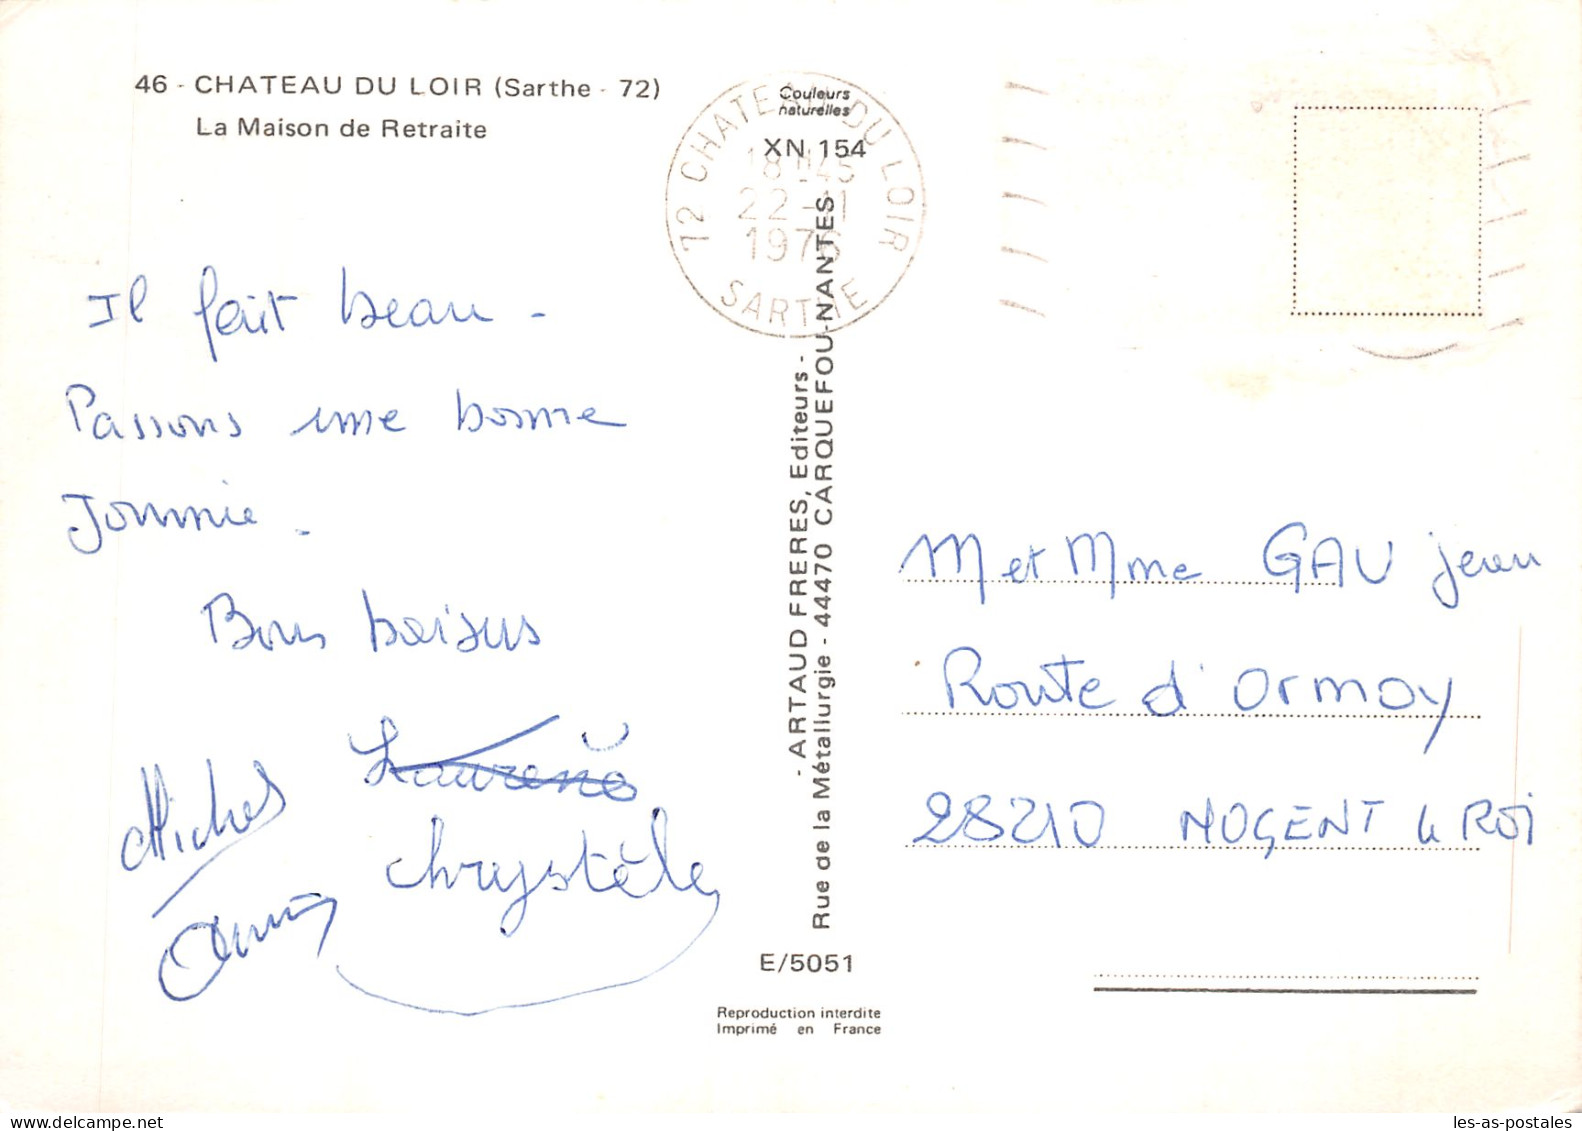 46 - CHATEAU DU LOIR (Sarthe - 72)
La Maison de Retraite
Couleurs
naturelles
XN 154
72 CHATEAU DU LOIR
18H45
22 - 1
1976
SARTHE
Il fait beau -
Passons une bonne
Journée.
Bons baisers
Michel
Laurence
Chrystèle
- ARTAUD FRERES, Editeurs -
Rue de la Métallurgie - 44470 CARQUEFOU-NANTES
E/5051
Reproduction interdite
Imprimé en France
M et Mme GAU jean
Route d'Ormoy
28210 NOGENT le ROi
les-as-postales